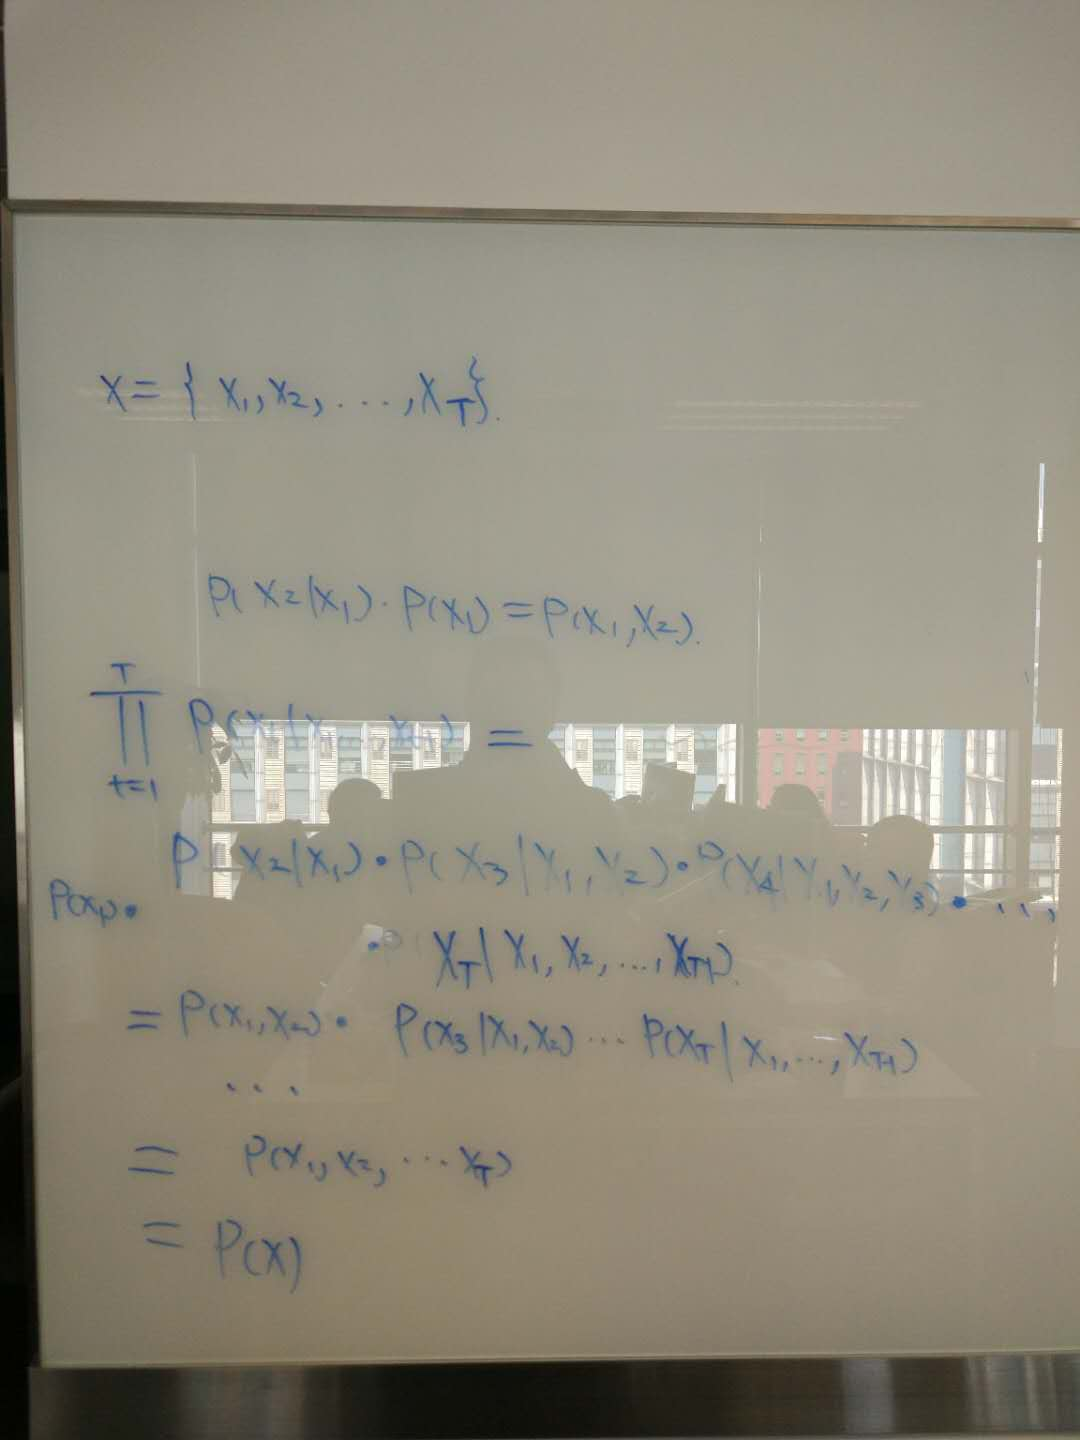 X = { X₁, X₂, ..., X_T }.
P( X₂|X₁) · P(X₁) = P(X₁, X₂).
∏_{t=1}^{T} P(X_t|X₁..., X_{t-1}) =
P(X₁) · P( X₂|X₁) · P( X₃ | X₁, X₂) · P(X₄| X₁, X₂, X₃) · ...,
· P( X_T | X₁, X₂, ..., X_{T-1}).
= P(X₁, X₂) · P(X₃ |X₁, X₂) ... P(X_T | X₁, ..., X_{T-1})
...
= P(X₁, X₂, ... X_T)
= P(X)